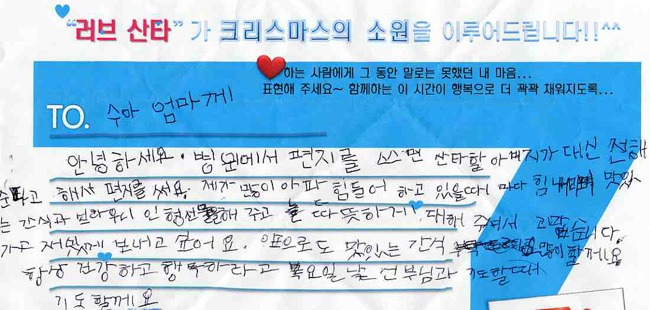 "러브 산타"가 크리스마스의 소원을 이루어드립니다!!^^
하는 사람에게 그 동안 말로는 못했던 내 마음...
표현해 주세요~ 함께하는 이 시간이 행복으로 더 꽉꽉 채워지도록...
TO. 수아 엄마께
안녕하세요. 병원에서 편지를 쓰면 산타할아버지가 대신 전해
준다고 해서 편지를 써요. 제가 많이 아파 힘들어 하고 있을때 마다 힘내라며 맛있
는 간식과 인형선물을 해 주고 늘 따뜻하게 대해 주셔서 고맙습니다.
재밌게 보내고 싶어요. 앞으로도 맛있는 간식 많이 할께요.
항상 건강하고 행복하라고 목요일날 신부님과 기도할때
기도할께요